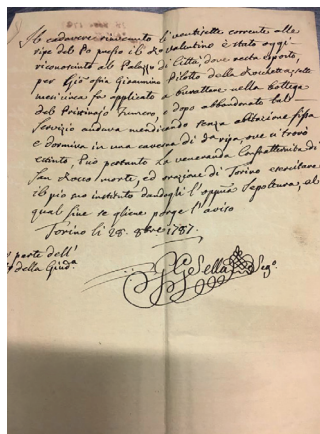 Il cadavere rinvenuto li ventisette corrente alle
ripe del Po presso il R. Valentino è stato oggi
riconosciuto al Palazzo di Città, dove resta esposto,
per Gio' Gioannino Pilotto della Rocchetta, sette
mesi circa fu applicato a burattare nella bottega
del Prestinajo Zumero, e dopo abbandonato tal
Servizio andava mendicando senza abitazione fissa
e dormiva in una caverna di d.ª ripa, ove si trovò
estinto, Può pertanto la veneranda Confraternita di
San Rocco morte, ed orazione di Torino esercitare
il pio suo instituto dandogli l'oppna Sepoltura, al
qual fine se gliene porge l'aviso
Torino li 28. 1787.
parte dell'
della Giud.ª
G Gesella Seg.º